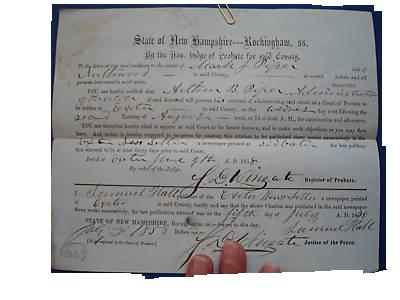 State of New Hampshire—Rockingham, ss.
By the Hon. Judge of Probate for said County.
To the heirs at law and creditors to the estate of Mark J. Piper late of
in said County, deceased, testate and all
persons interested in said estate, GREETING.
YOU are hereby notified that Arthur B. Piper Administrator
of said deceased will present his account of administering said estate at a Court of Probate to
be holden at Exeter in said County, on Wednesday the
second Tuesday of August next, at 10 o'clock A. M., for examination and allowance.
You are therefore hereby cited to appear at said Court to be heard thereon, and to make such objections as you may then
have. And notice is hereby required to be given by causing this citation to be published three weeks successively in the
Exeter News Letter a newspaper printed at said Exeter the last publication
whereof to be at least thirty days prior to said Court.
Dated at Exeter June 9th A. D. 1858
By order of the Judge.
Register of Probate.
I, Samuel Hall of the Exeter News Letter a newspaper printed
at Exeter in said County, certify and say that the above Citation was published in said newspaper
three weeks successively, the last publication whereof was on the fifth day of July A. D. 1858
Samuel Hall
STATE OF NEW HAMPSHIRE, ROCKINGHAM, ss. day.
July 30 1858
Before me,
Justice of the Peace.
[To be returned to the Court of Probate.]